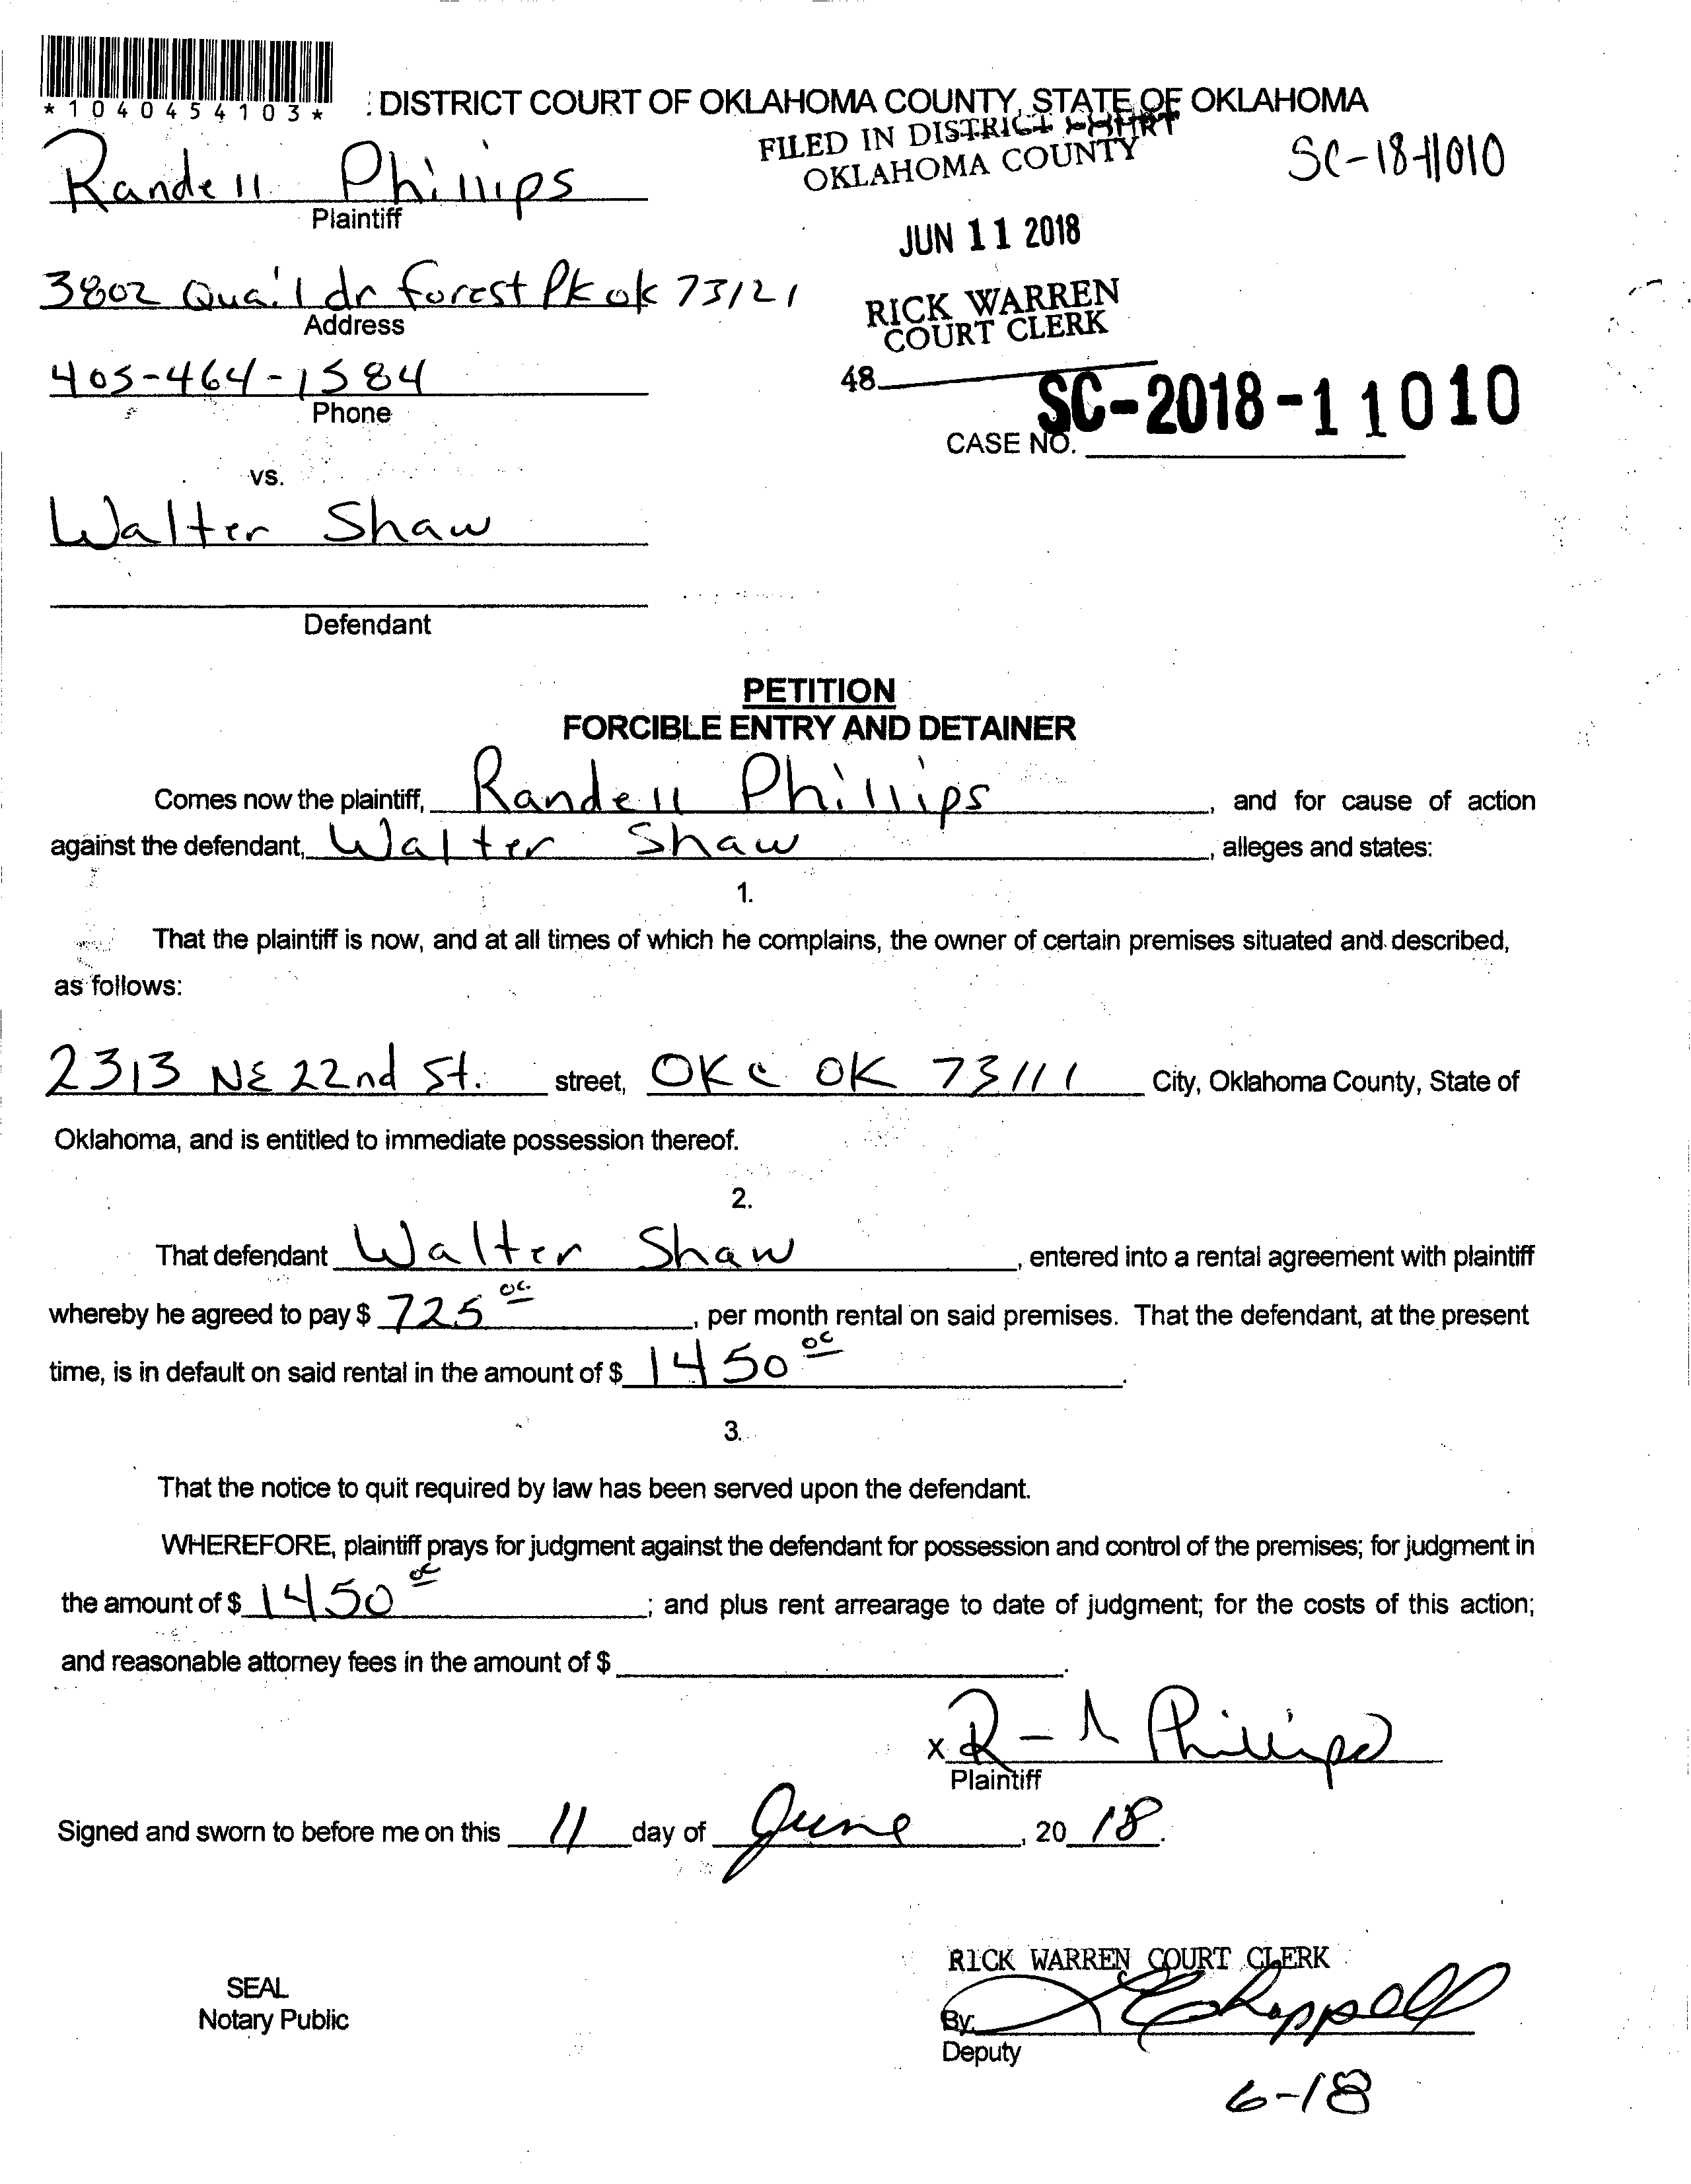 *1040454103*
DISTRICT COURT OF OKLAHOMA COUNTY, STATE OF OKLAHOMA
FILED IN DISTRICT COURT
OKLAHOMA COUNTY
SC-18-11010
Randell Phillips
Plaintiff
JUN 11 2018
3802 Quail dr forest Pk ok 73121
Address
RICK WARREN
COURT CLERK
405-464-1584
Phone
48
SC-2018-11010
CASE NO.
vs.
Walter Shaw
Defendant
PETITION
FORCIBLE ENTRY AND DETAINER
Comes now the plaintiff, Randell Phillips, and for cause of action
against the defendant, Walter Shaw, alleges and states:
1.
That the plaintiff is now, and at all times of which he complains, the owner of certain premises situated and described,
as follows:
2313 NE 22nd St. street, OKC OK 73111 City, Oklahoma County, State of
Oklahoma, and is entitled to immediate possession thereof.
2.
That defendant Walter Shaw, entered into a rental agreement with plaintiff
whereby he agreed to pay $ 725 00, per month rental on said premises. That the defendant, at the present
time, is in default on said rental in the amount of $ 1450 00.
3.
That the notice to quit required by law has been served upon the defendant.
WHEREFORE, plaintiff prays for judgment against the defendant for possession and control of the premises; for judgment in
the amount of $ 1450 00; and plus rent arrearage to date of judgment; for the costs of this action;
and reasonable attorney fees in the amount of $
x R Phillips
Plaintiff
Signed and sworn to before me on this 11 day of June, 2018.
RICK WARREN COURT CLERK
SEAL
Notary Public
By: Chappell
Deputy
6-18